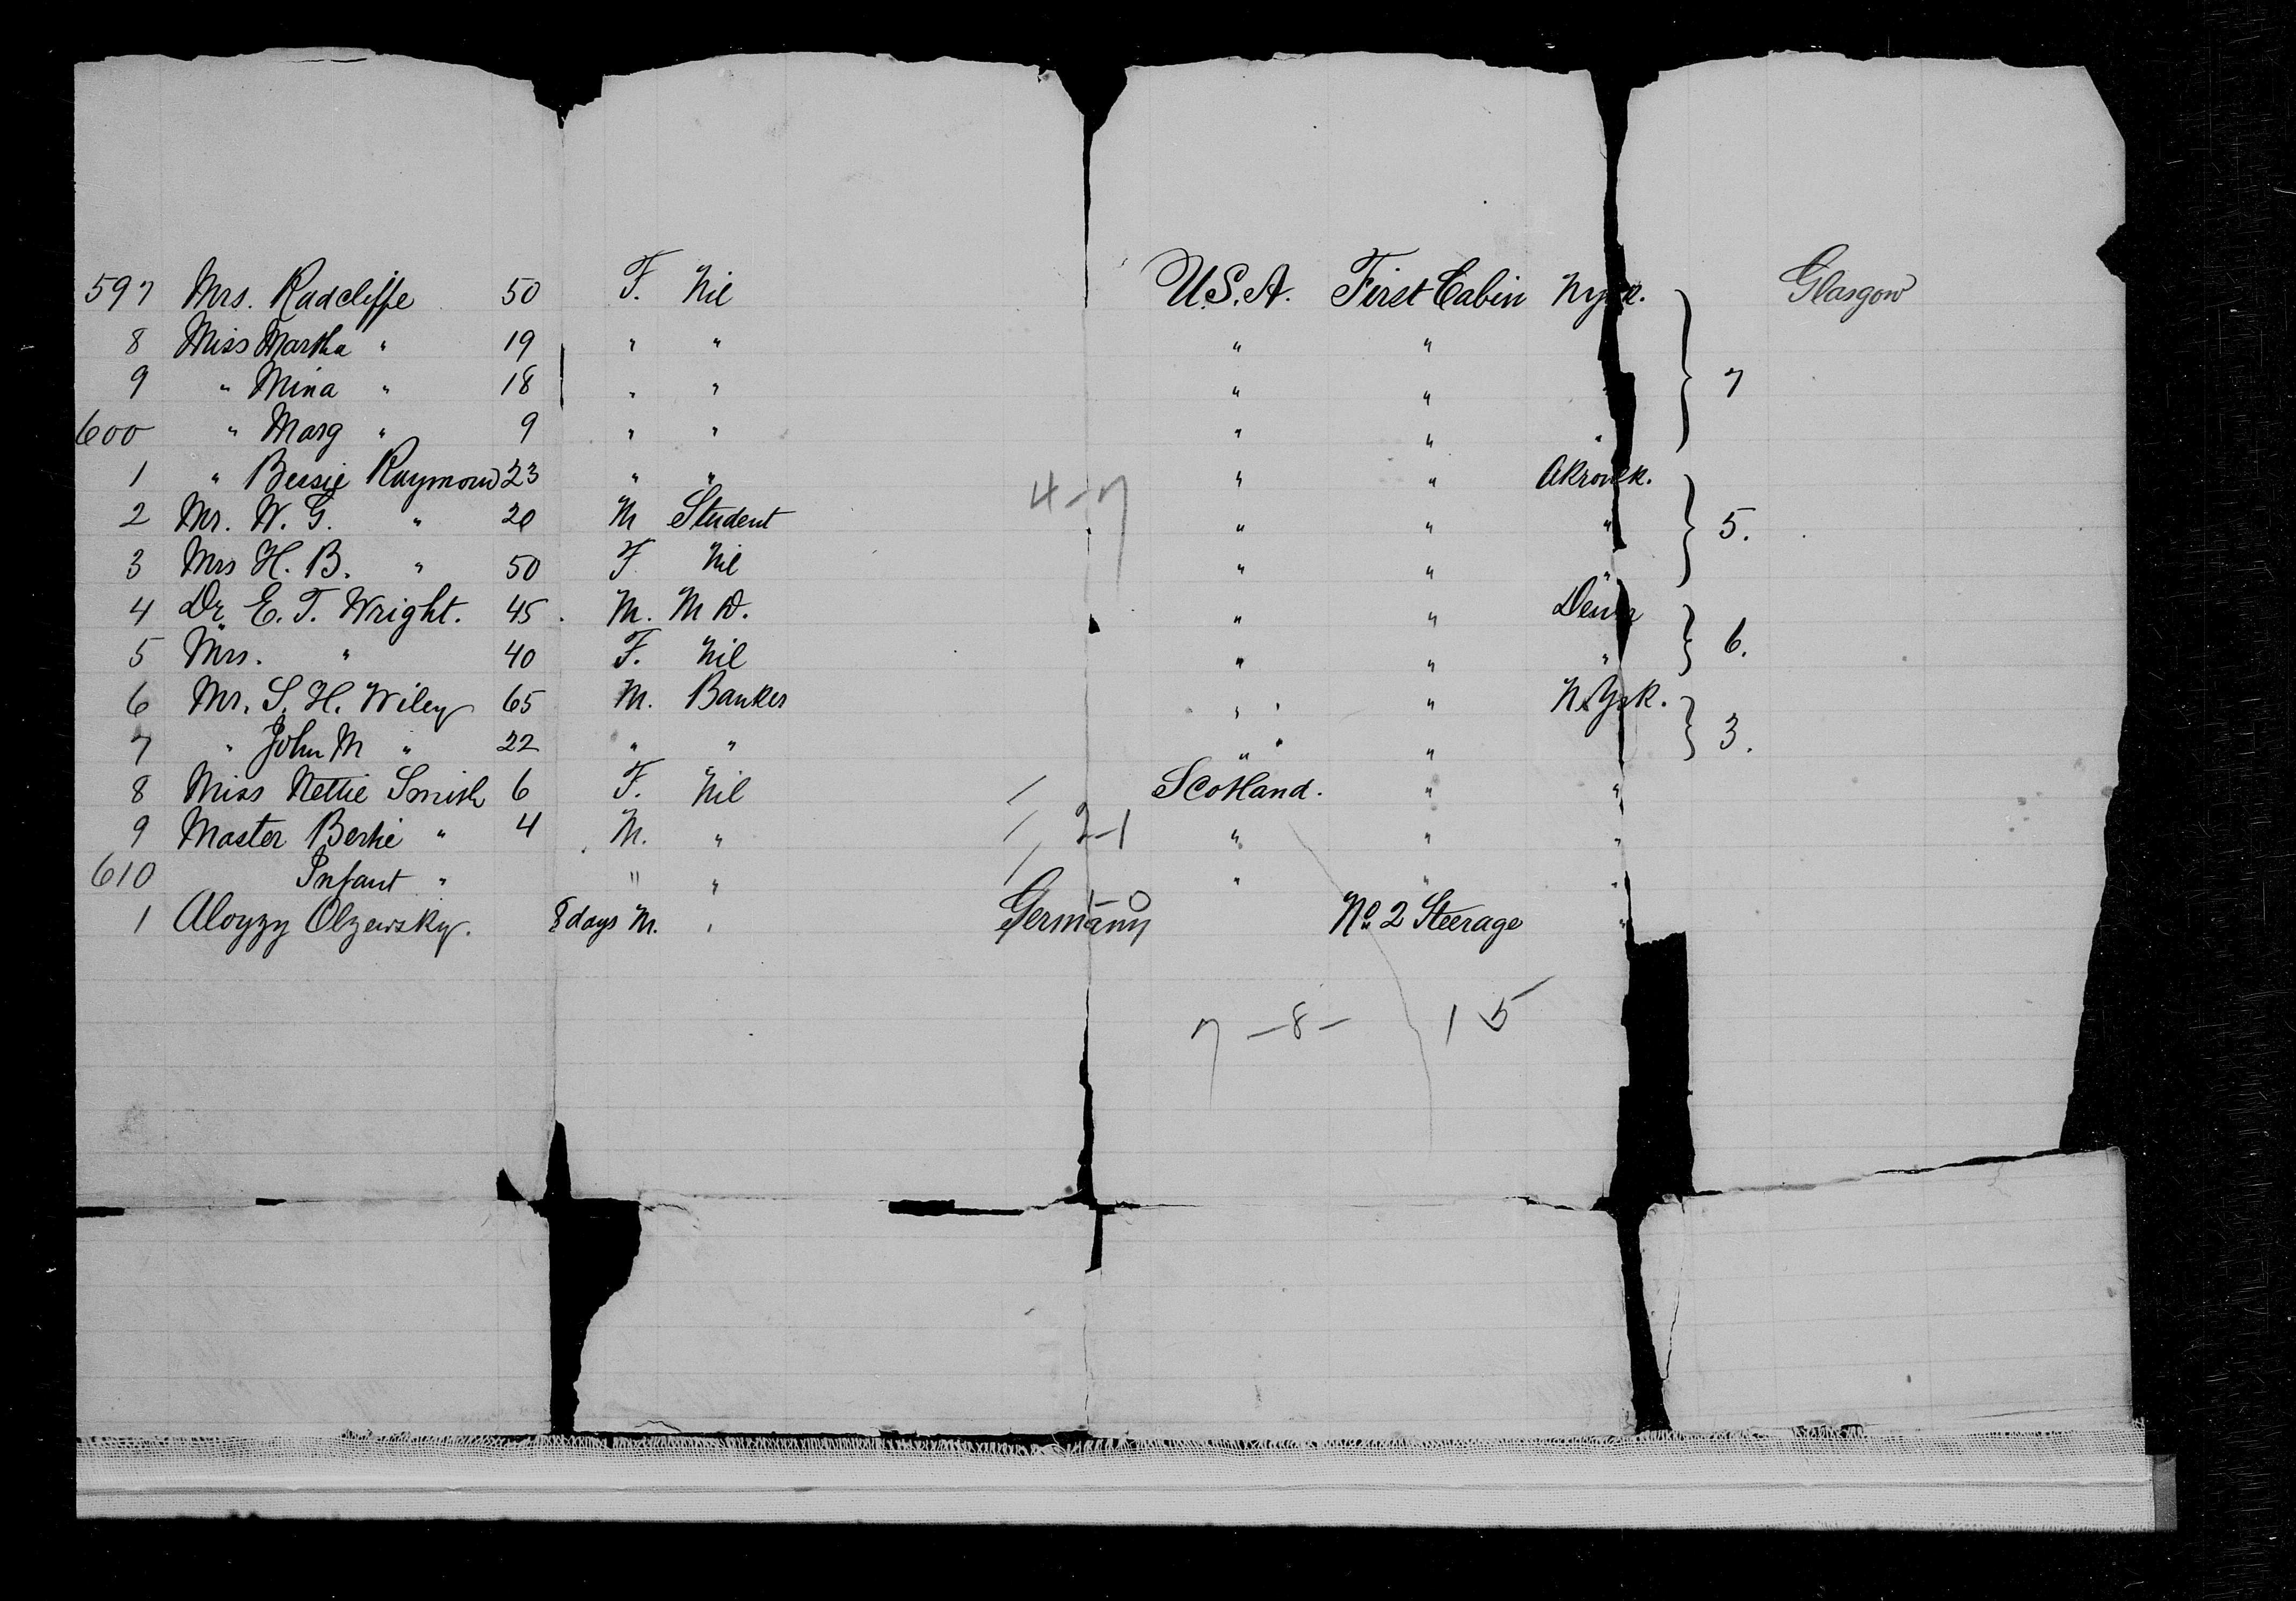 597 Mrs. Radcliffe 50 F. Nil U.S.A. First Cabin Glasgow
8 Miss Martha " 19 " " " "
9 " Mina " 18 " " " " " 7
600 " Marg " 9 " " " " "
1 " Bessie Raymond 23 " " " "
2 Mr. W. G. " 20 M Student 4-7 " " " 5.
3 Mrs H. B. " 50 F Nil " " "
4 Dr. E. T. Wright. 45 M. M D. " "
5 Mrs. " 40 F. Nil " " " 6.
6 Mr. S. H. Wiley 65 M. Banker " " N. York.
7 " John M " 22 " " " " 3.
8 Miss Nettie Smith 6 F. Nil / Scotland. " "
9 Master Bertie " 4 M. " / 2-1 " " "
610 Infant " " " / " " "
1 Aloyzy Olzewsky. 8 days M. " Germany 1-0 No. 2 Steerage "
7 - 8 - 15